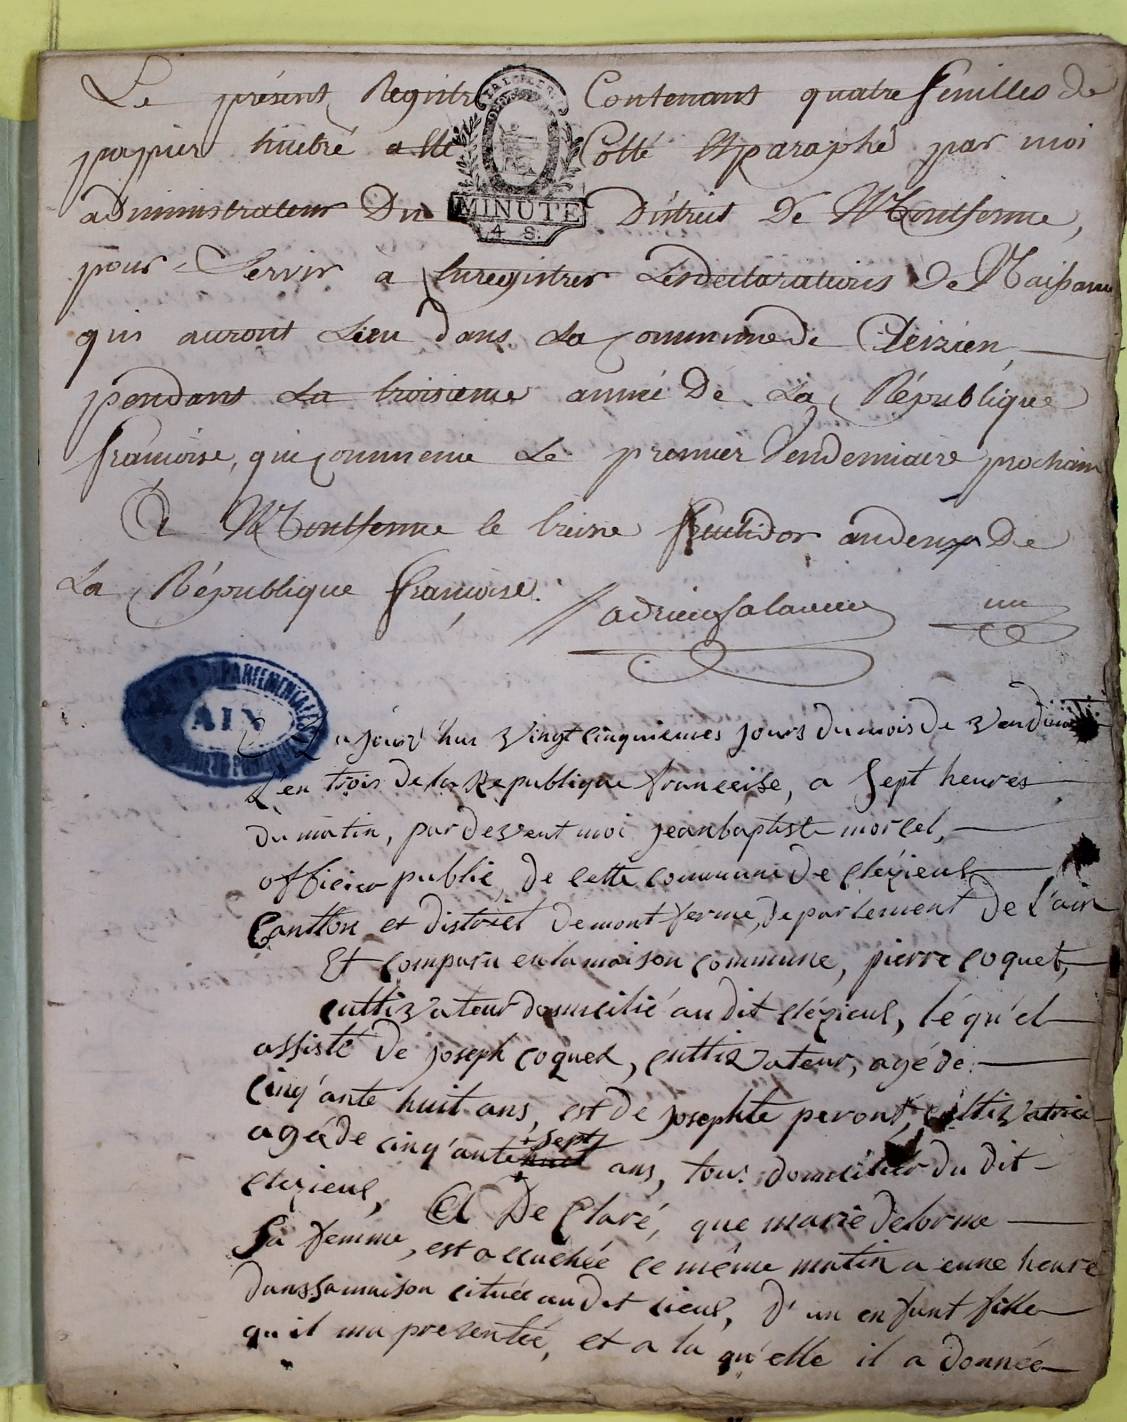 Le présent Registre Contenant quatre feuilles de
papier timbré a été Cotté et paraphé par moi
administrateur Du District De Montferme,
MINUTE
4 S.
pour Servir à Enregistrer Les declarations De Naissance
qui auront Lieu dans La Commune de Cleizieu
pendant La troisieme année De La République
françoise, qui commence Le premier Vendemiaire prochain
A Montferme le treise fructidor an deux De
La République françoise.
un
DEPARTEMENTALES
AIN
aujourd'hui vingt cinquiemes jours du mois de Vendimiaire
L'en trois de la Republique françeise, a sept heures
du matin, par devent moi jean baptiste morcel,
officier public, de cette commune de clézieus
Cantton et district de montferme, departement De L'ain
Et comparu en la maison commune, pierre coquet,
cultivateur domicilié audit clézieus, léqu'el
assisté De joseph coquet, cultivateur, agé de
cinq'ante huit ans, est de josephte peront, cultivatrice
agée de cinq'ante sept ans, tous domiciliés du dit
clezieus, Et De Claré, que marie delorme
sa femme, est accuchée ce même matin a eune heure
dans sa maison cituée audit lieus, d'un enfant fille
qu'il ma prezentée, et a la qu'elle il a donnée